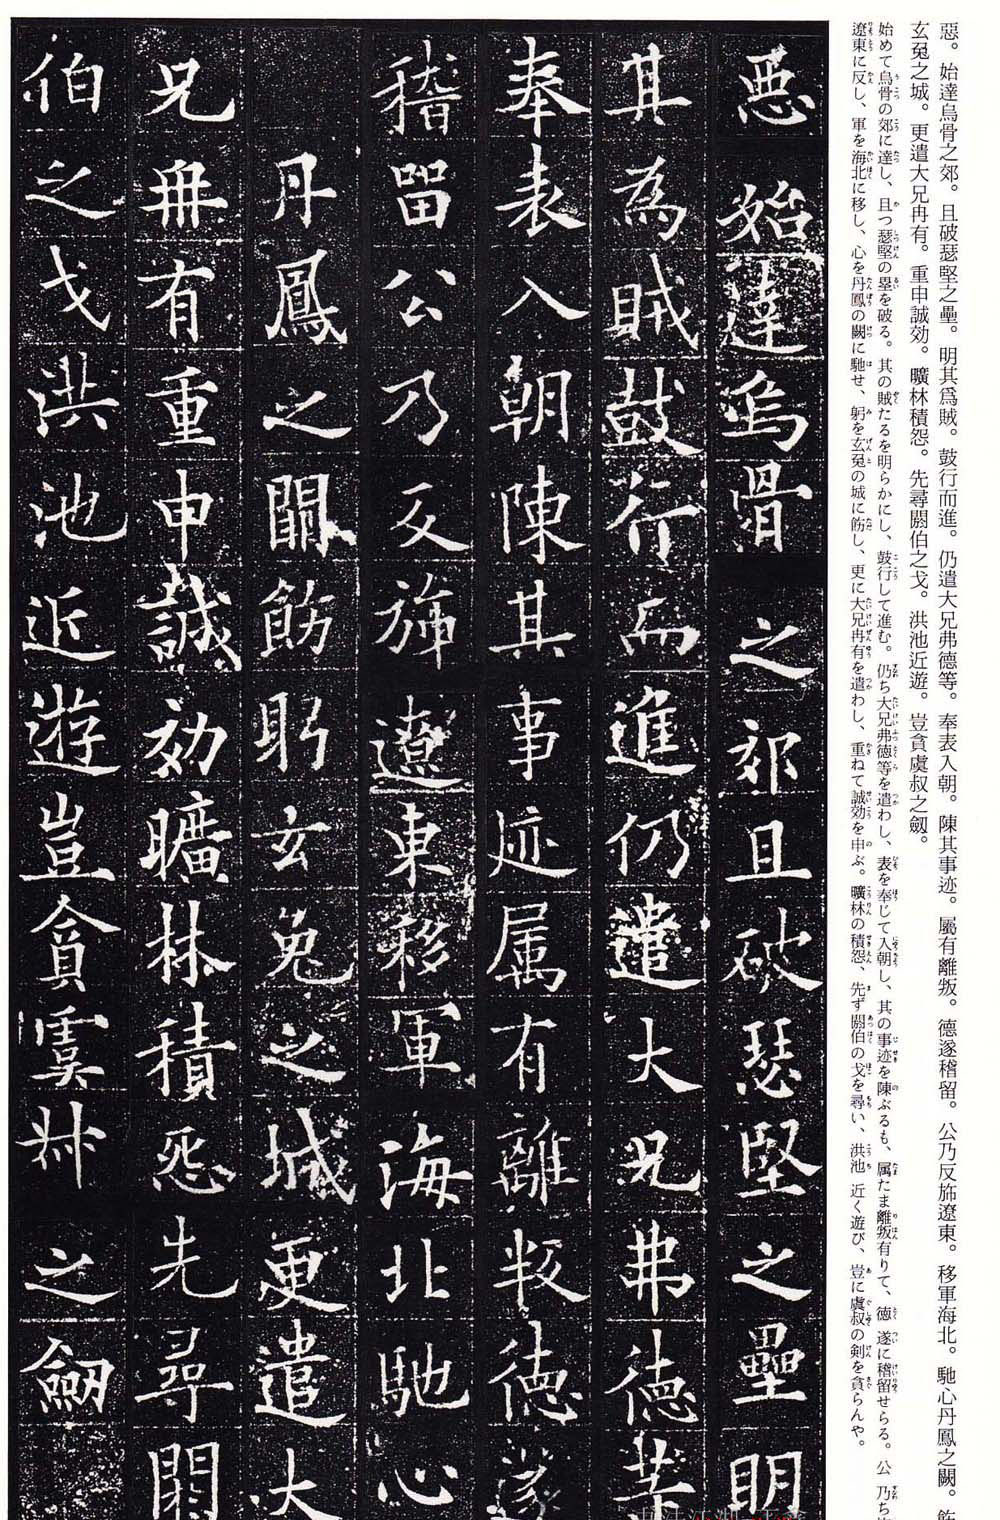 惡。始達烏骨之郊。且破瑟堅之壘。明其爲賊。鼓行而進。仍遣大兄弗德等。奉表入朝。陳其事迹。屬有離叛。德遂稽留。公乃反旆遼東。移軍海北。馳心丹鳳之闕。飭
玄兔之城。更遣大兄冉有。重申誠効。曠林積怨。先尋閼伯之戈。洪池近遊。豈貪虞叔之劔。
始めて烏骨の郊に達し、且つ瑟堅の塁を破る。其の賊たるを明らかにし、鼓行して進む。仍ち大兄弗德等を遣わし、表を奉じて入朝し、其の事迹を陳ぶるも、属たま離叛有りて、徳 遂に稽留せらる。公 乃ち
遼東に反し、軍を海北に移し、心を丹鳳の闕に馳せ、躬を玄兔の城に飭し、更に大兄冉有を遣わし、重ねて誠効を申ぶ。曠林の積怨、先ず閼伯の戈を尋い、洪池 近く遊び、豈に虞叔の剣を貪らんや。
惡始達烏骨之郊且破瑟堅之壘明
其為賊鼓行而進仍遣大兄弗德等
奉表入朝陳其事迹属有離叛德遂
稽留公乃反旆遼東移軍海北馳心
丹鳳之闕飭躬玄兔之城更遣大
兄冉有重申誠効曠林積怨先尋閼
伯之戈洪池近遊豈貪虞叔之劔